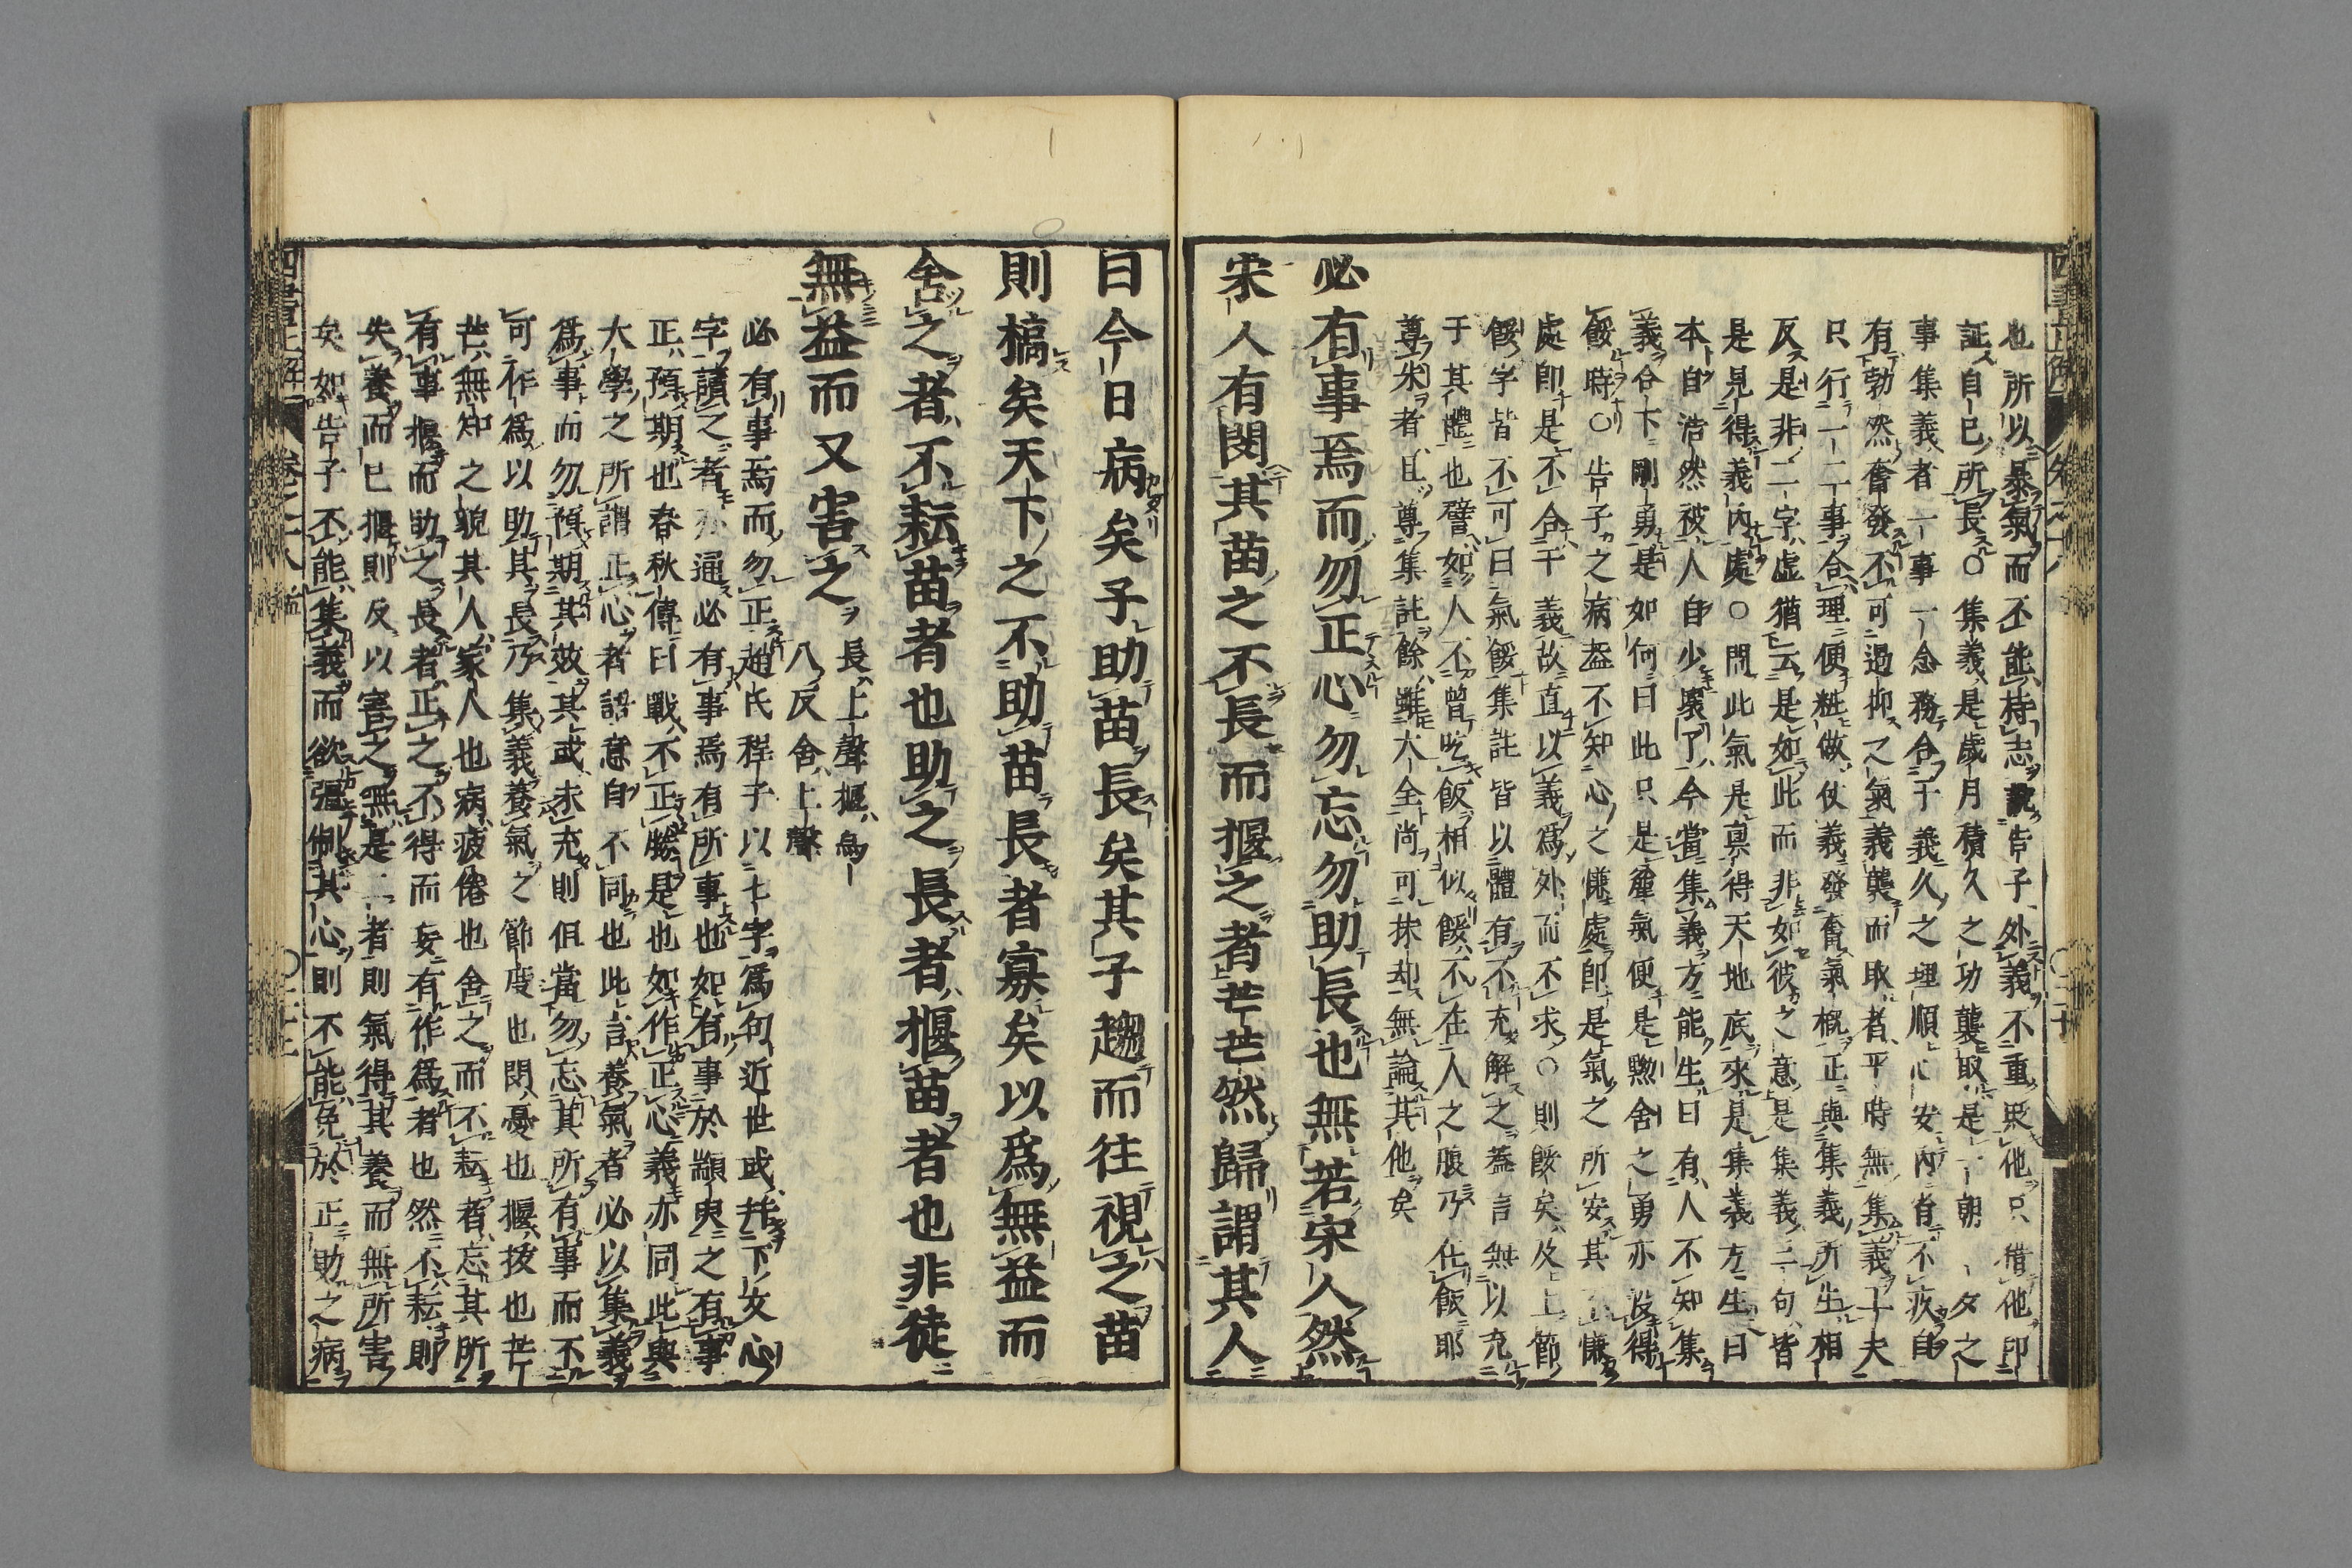 也所以暴氣而不能持志覗告子外義不重衆他只借他印
証自已所長〇集義是歲月積久之功襲取是一朝一夕之
事集義者一事一念務合于義久之理順心安內省不疚自
有勃然奮發不可遏抑之氣義襲而取者平時無集義工夫
只行一二事合理便粧做仗義發奮氣槪正與集義所生相
反是非二字虚猶云是如此而非如彼之意是集義二句皆
是見得義內處〇問此氣是禀得天地底來是集義方生曰
本自浩然被人自少壞了今當集義方能生曰有人不知集
義合下剛勇是如何曰此只是麤氣便是黝舍之勇亦沒得
餒時〇告子之病盖不知心之慊處卽是氣之所安其不慊
處卽是不合于義故直以義爲外而不求〇則餒矣及上節
餒字皆不可曰氣餒集註皆以體有不充解之葢言無以充
于其體也譬如人不曾吃飯相似餒不在人之腹乃在飯耶
尊朱者且尊集註餘雖大全尚可抹却無論其他矣
必有事焉而勿正心勿忘勿助長也無若宋人然
宋人有閔其苗之不長而揠之者芒芒然歸謂其人
曰今日病矣予助苗長矣其子趨而往視之苗
則槁矣天下之不助苗長者寡矣以爲無益而
舍之者不耘苗者也助之長者揠苗者也非徒
無益而又害之長上聲揠烏
八反舍上聲
必有事焉而勿正趙氏程子以七字爲句近世或幷下文心
字讀之者亦通必有事焉有所事也如有事於顓臾之有事
正預期也春秋傳曰戰不正勝是也如作正心義亦同此與
大學之所謂正心者語意自不同也此言養氣者必以集義
爲事而勿預期其效其或未充則但當勿忘其所有事而不
可作爲以助其長乃集義養氣之節度也閔憂也揠拔也芒
芒無知之貌其人家人也病疲倦也舍之而不耘者忘其所
有事揠而助之長者正之不得而妄有作爲者也然不耘則
失養而已揠則反以害之無是二者則氣得其養而無所害
矣如告子不能集義而欲彊制其心則不能免於正助之病